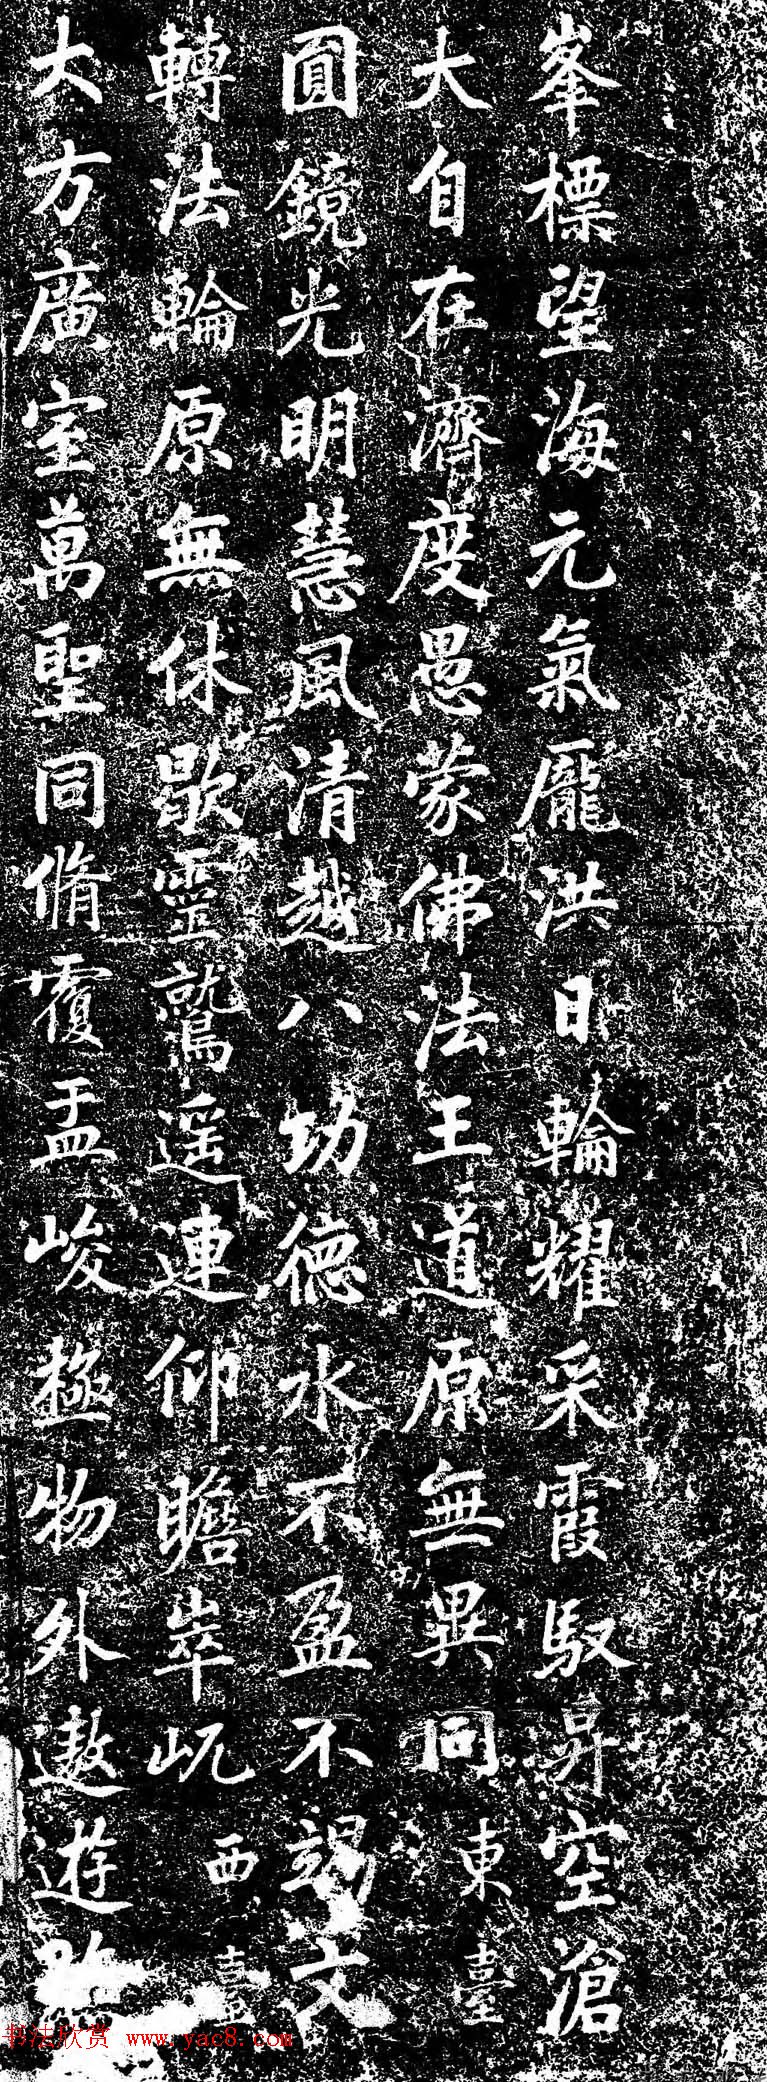 峯標望海元氣龐洪日輪耀采霞馭昇空滄
大自在濟度愚蒙佛法王道原無異同
東臺
圓鏡光明慧風清越八功德水不盈不竭文
轉法輪原無休歇靈鷲遥連仰瞻崒屼
西臺
大方廣室萬聖同脩覆盂峻極物外遨遊
书法欣赏 www.yac8.com